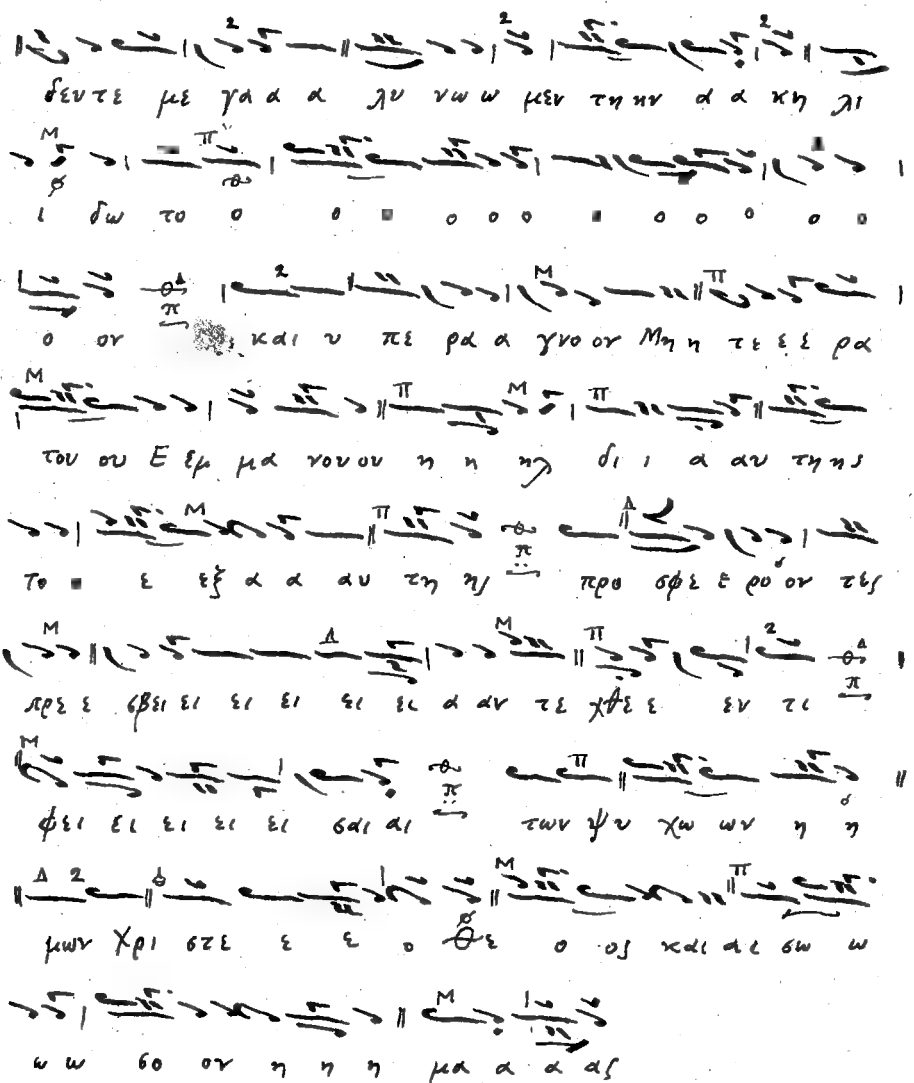 δευ τε με γα α α λυ νω ω μεν τη ην α α κη λι
ι δω το ο ο ο ο ο ο ο ο ο
ο ον και υ πε ρα α γνο ον Μη η τε ε ε ρα
του ου Ε εμ μα νου ου η η ηλ δι ι α αυ τη ης
το ε εξ α α αυ τη ης προ σφε ε ρο ον τες
πρε ε σβει ει ει ει ει ει α αν τε χθε ε εν τι
ψει ει ει ει ει σαι αι των ψυ χω ων η η
μων Χρι στε ε ε ο Θε ο ος και αι σω ω
ω ω σο ον η η η μα α α ας